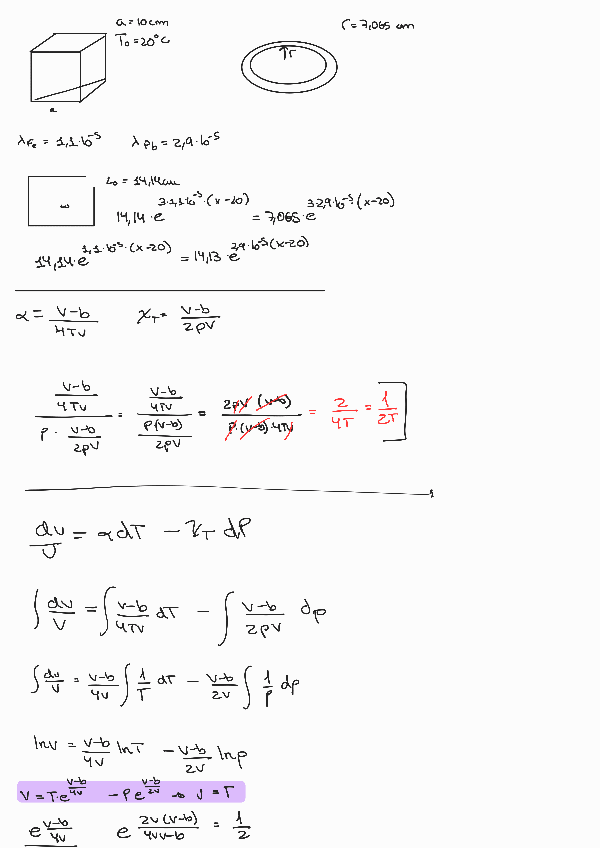 a = 10 cm
T₀ = 20°C
r = 7,065 cm
r
a
λFe = 1,1·10⁻⁵ λPb = 2,9·10⁻⁵
L₀ = 14,14 cm
14,14·e^(3·1,1·10⁻⁵·(x-20)) = 7,065·e^(3·2,9·10⁻⁵(x-20))
14,14·e^(1,1·10⁻⁵·(x-20)) = 14,13·e^(2,9·10⁻⁵(x-20))
α = (V-b)/(4TV) χT = (V-b)/(2pV)
((V-b)/(4TV))/(P·(V-b)/(2pV)) = ((V-b)/(4TV))/(P(V-b)/(2pV)) = (2pV(V-b))/(P·(V-b)·4TV) = 2/(4T) = 1/(2T)
dV/V = α dT - χT dP
∫ dV/V = ∫ (V-b)/(4TV) dT - ∫ (V-b)/(2pV) dp
∫ dV/V = (V-b)/(4V) ∫ 1/T dT - (V-b)/(2V) ∫ 1/P dp
lnV = (V-b)/(4V) lnT - (V-b)/(2V) lnp
V = T·e^((V-b)/(4V)) - P e^((V-b)/(2V)) → V = T
e^((V-b)/(4V)) e^((2V(V-b))/(4V(V-b))) = 1/2